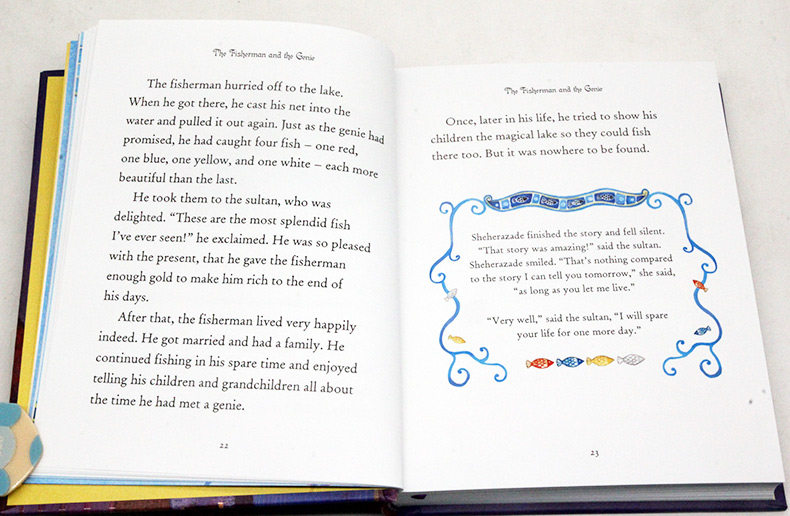 The Fisherman and the Genie
The fisherman hurried off to the lake.
When he got there, he cast his net into the
water and pulled it out again. Just as the genie had
promised, he had caught four fish – one red,
one blue, one yellow, and one white – each more
beautiful than the last.
He took them to the sultan, who was
delighted. “These are the most splendid fish
I’ve ever seen!” he exclaimed. He was so pleased
with the present, that he gave the fisherman
enough gold to make him rich to the end of
his days.
After that, the fisherman lived very happily
indeed. He got married and had a family. He
continued fishing in his spare time and enjoyed
telling his children and grandchildren all about
the time he had met a genie.
22
The Fisherman and the Genie
Once, later in his life, he tried to show his
children the magical lake so they could fish
there too. But it was nowhere to be found.
Sheherazade finished the story and fell silent.
“That story was amazing!” said the sultan.
Sheherazade smiled. “That’s nothing compared
to the story I can tell you tomorrow,” she said,
“as long as you let me live.”
“Very well,” said the sultan, “I will spare
your life for one more day.”
23